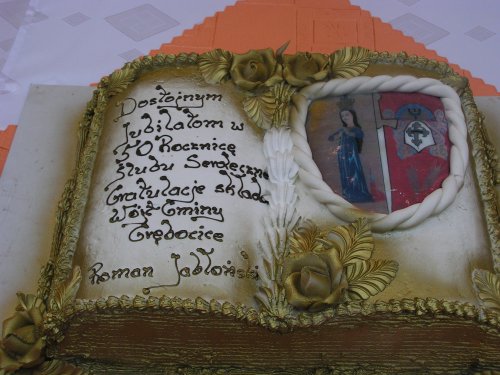 Dostojnym
Jubilatom w
50 Rocznicę
Ślubu Serdeczne
Gratulacje składa
Wójt Gminy
Trębocice
Roman Jabłoński